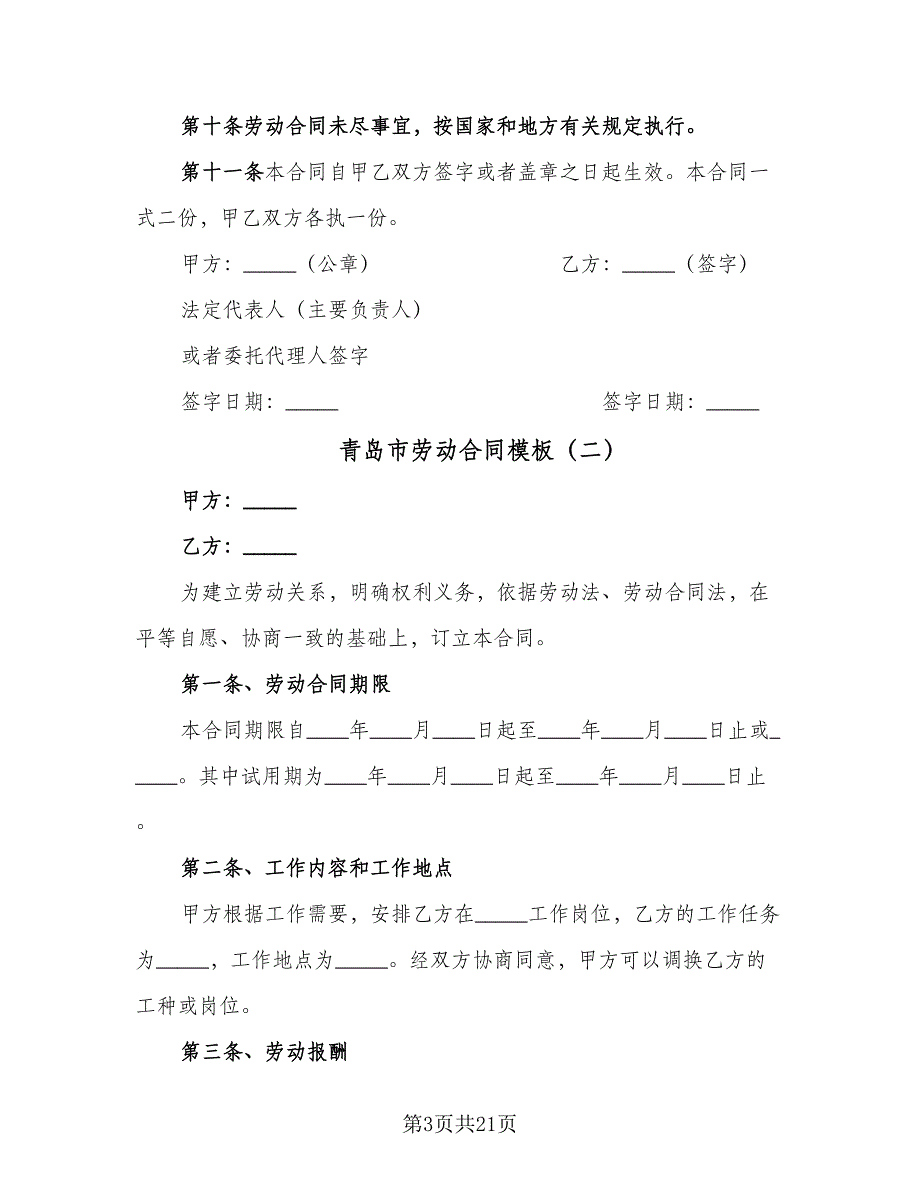 第十条劳动合同未尽事宜，按国家和地方有关规定执行。
第十一条本合同自甲乙双方签字或者盖章之日起生效。本合同一
式二份，甲乙双方各执一份。
甲方：_____（公章） 乙方：_____（签字）
法定代表人（主要负责人）
或者委托代理人签字
签字日期：_____ 签字日期：_____
青岛市劳动合同模板（二）
甲方：_____
乙方：_____
为建立劳动关系，明确权利义务，依据劳动法、劳动合同法，在
平等自愿、协商一致的基础上，订立本合同。
第一条、劳动合同期限
本合同期限自____年____月____日起至____年____月____日止或_
____。其中试用期为____年____月____日起至____年____月____日止
。
第二条、工作内容和工作地点
甲方根据工作需要，安排乙方在_____工作岗位，乙方的工作任务
为_____，工作地点为_____。经双方协商同意，甲方可以调换乙方的
工种或岗位。
第三条、劳动报酬
第3页共21页